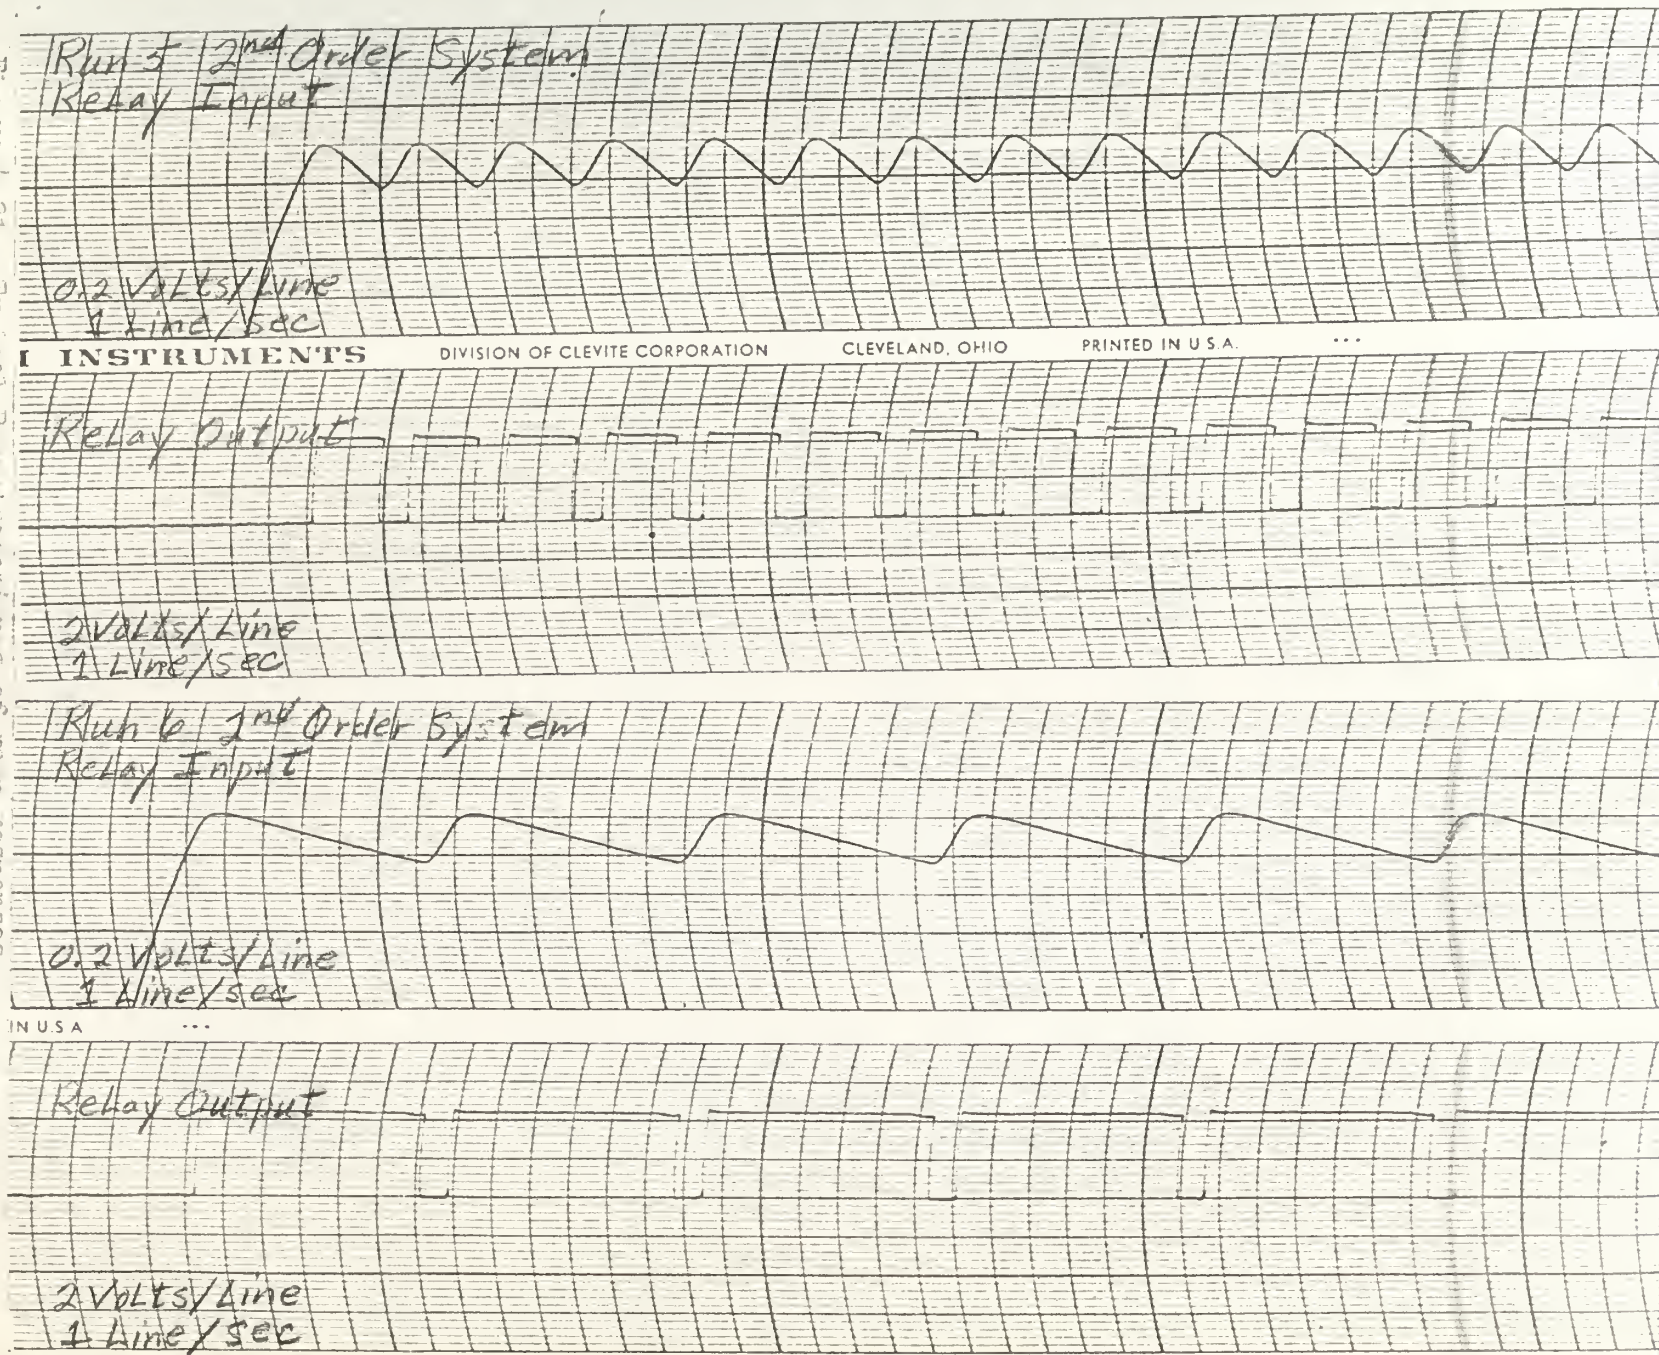 Run 5 2nd Order System
Relay Input
0.2 Volts/Line
1 Line/sec
INSTRUMENTS DIVISION OF CLEVITE CORPORATION CLEVELAND, OHIO PRINTED IN U.S.A.
Relay Output
2 Volts/Line
1 Line/sec
Run 6 2nd Order System
Relay Input
0.2 Volts/Line
1 Line/sec
IN U.S.A
Relay Output
2 Volts/Line
1 Line/sec